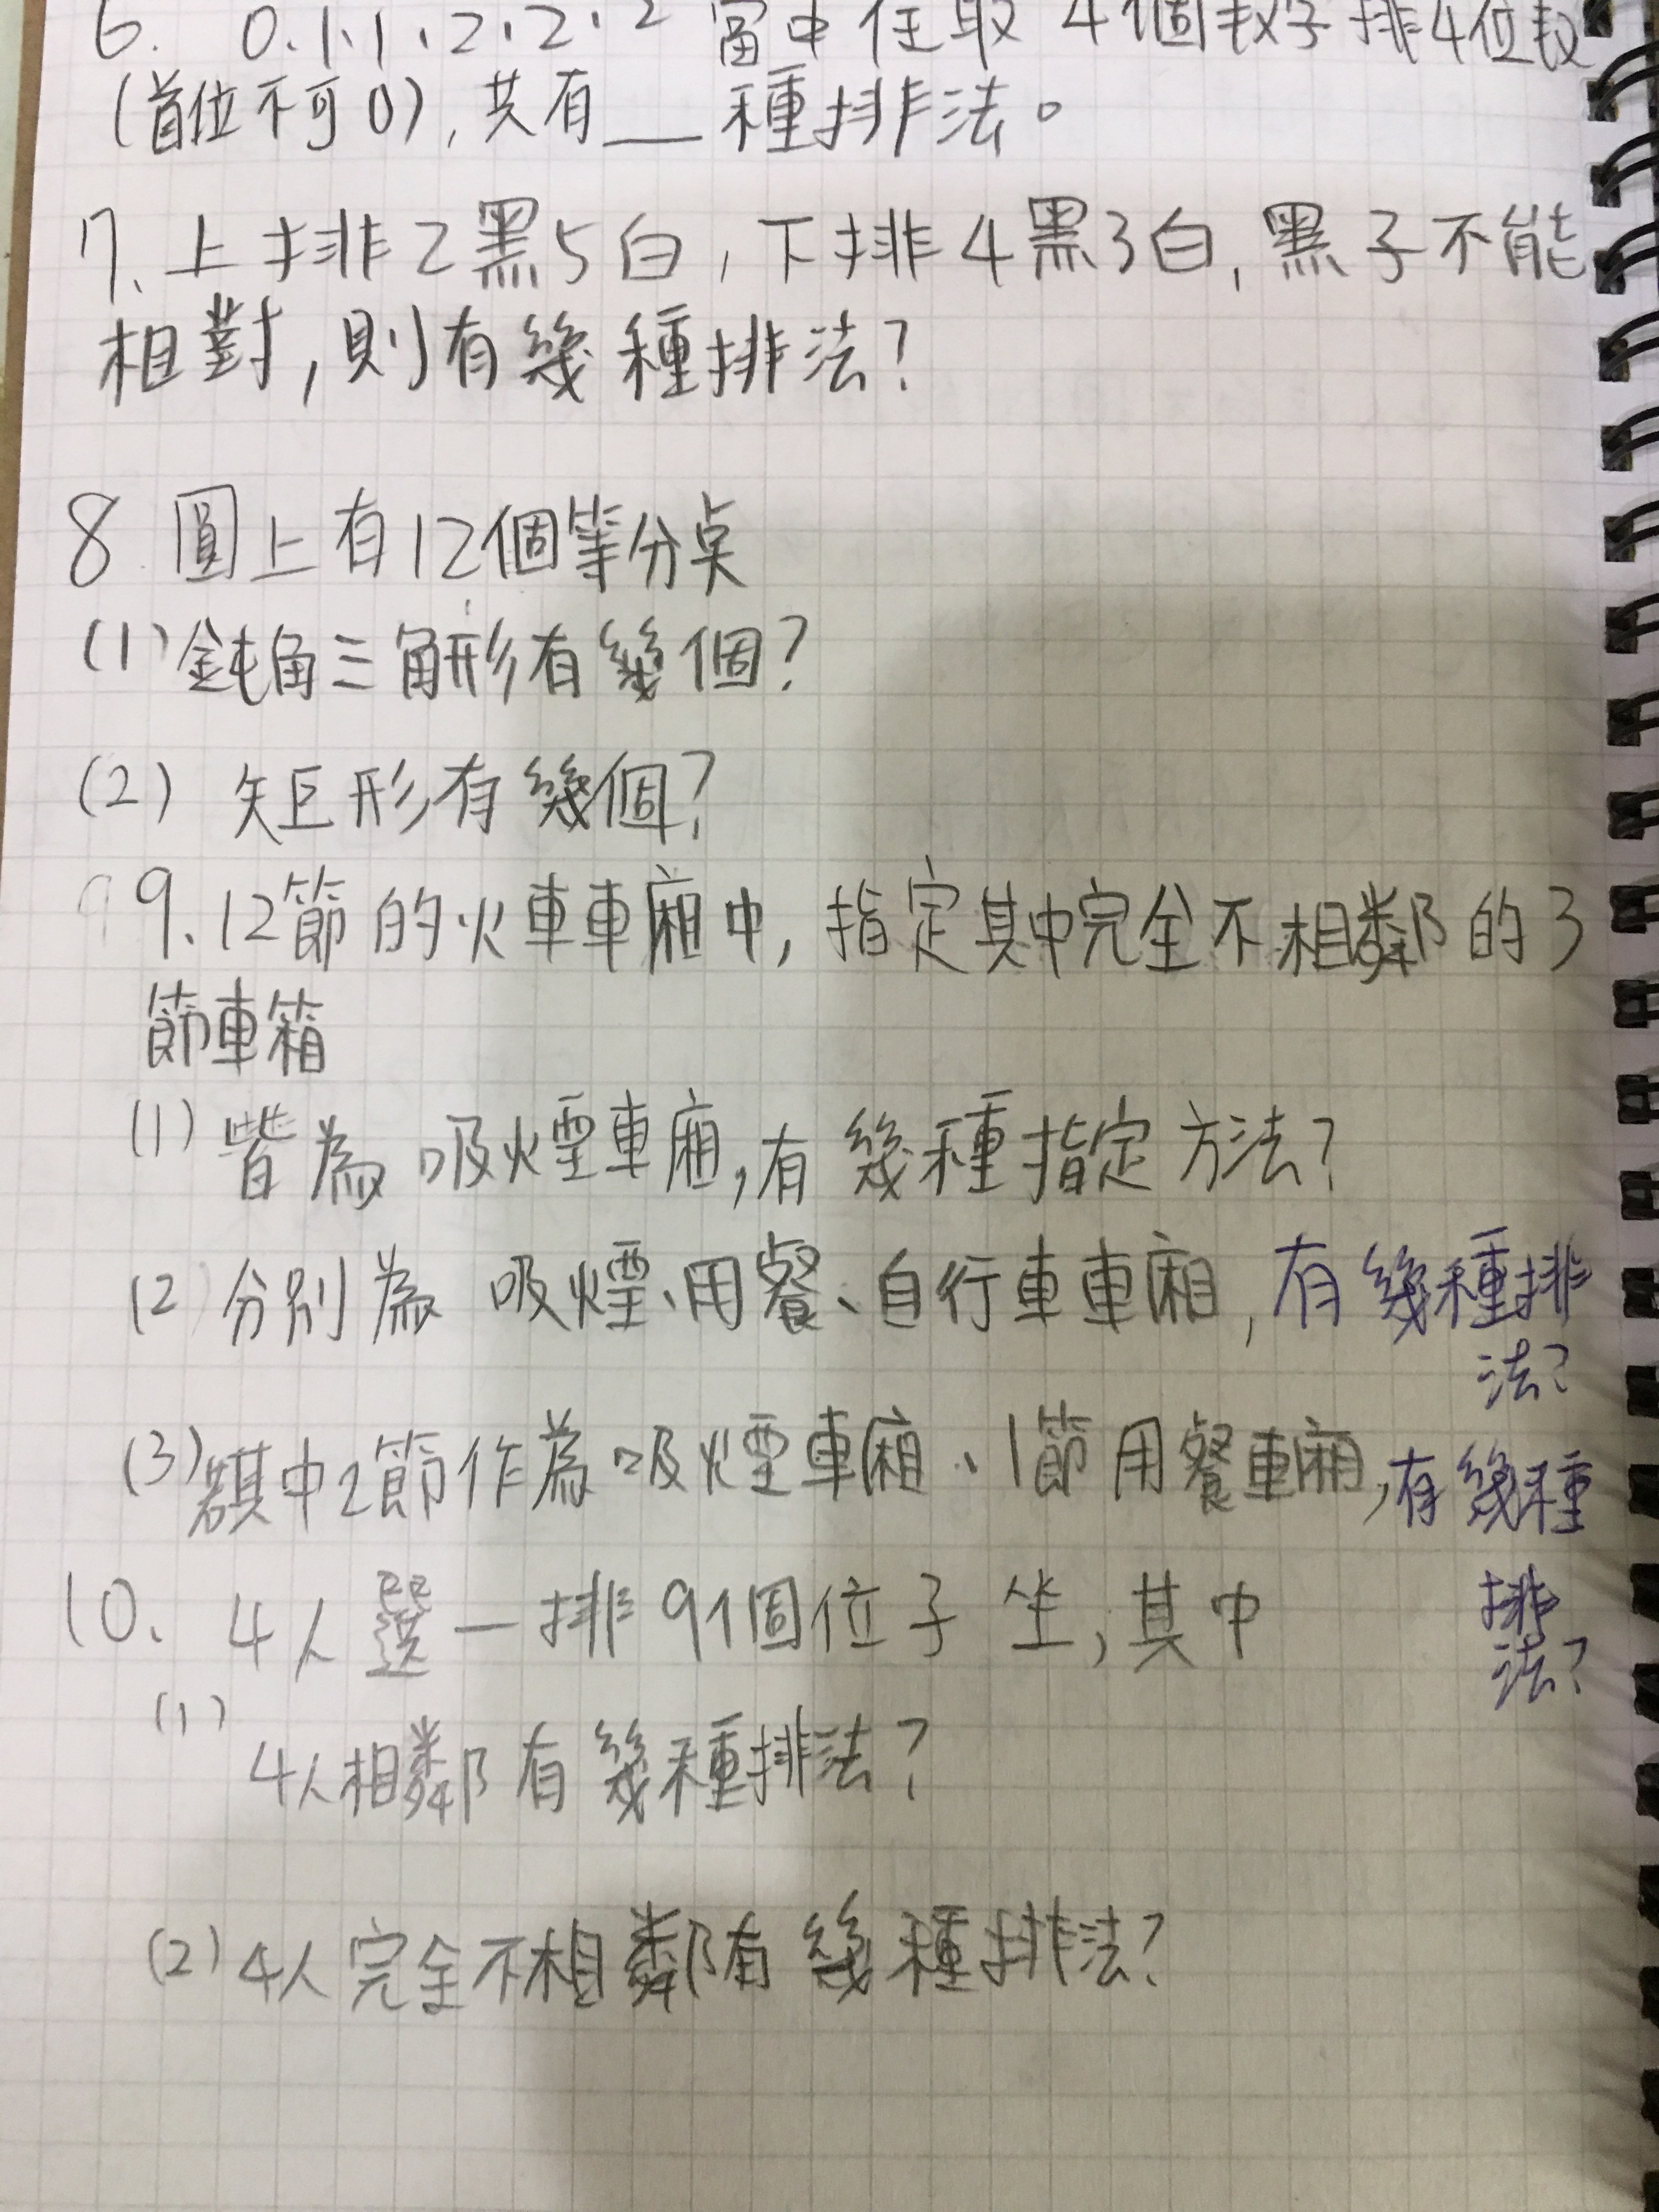 6. 0.1.1.2.2.2 當中任取4個數字排4位數
(首位不可0),共有__種排法。
7. 上排2黑5白,下排4黑3白,黑子不能
相對,則有幾種排法?
8. 圓上有12個等分點
(1) 鈍角三角形有幾個?
(2) 矩形有幾個?
9. 12節的火車車廂中,指定其中完全不相鄰的3
節車箱
(1) 皆為吸煙車廂,有幾種指定方法?
(2) 分別為吸煙、用餐、自行車車廂,有幾種排
法?
(3) 其中2節作為吸煙車廂、1節用餐車廂,有幾種
排
法?
10. 4人選一排9個位子坐,其中
(1)
4人相鄰有幾種排法?
(2) 4人完全不相鄰有幾種排法?